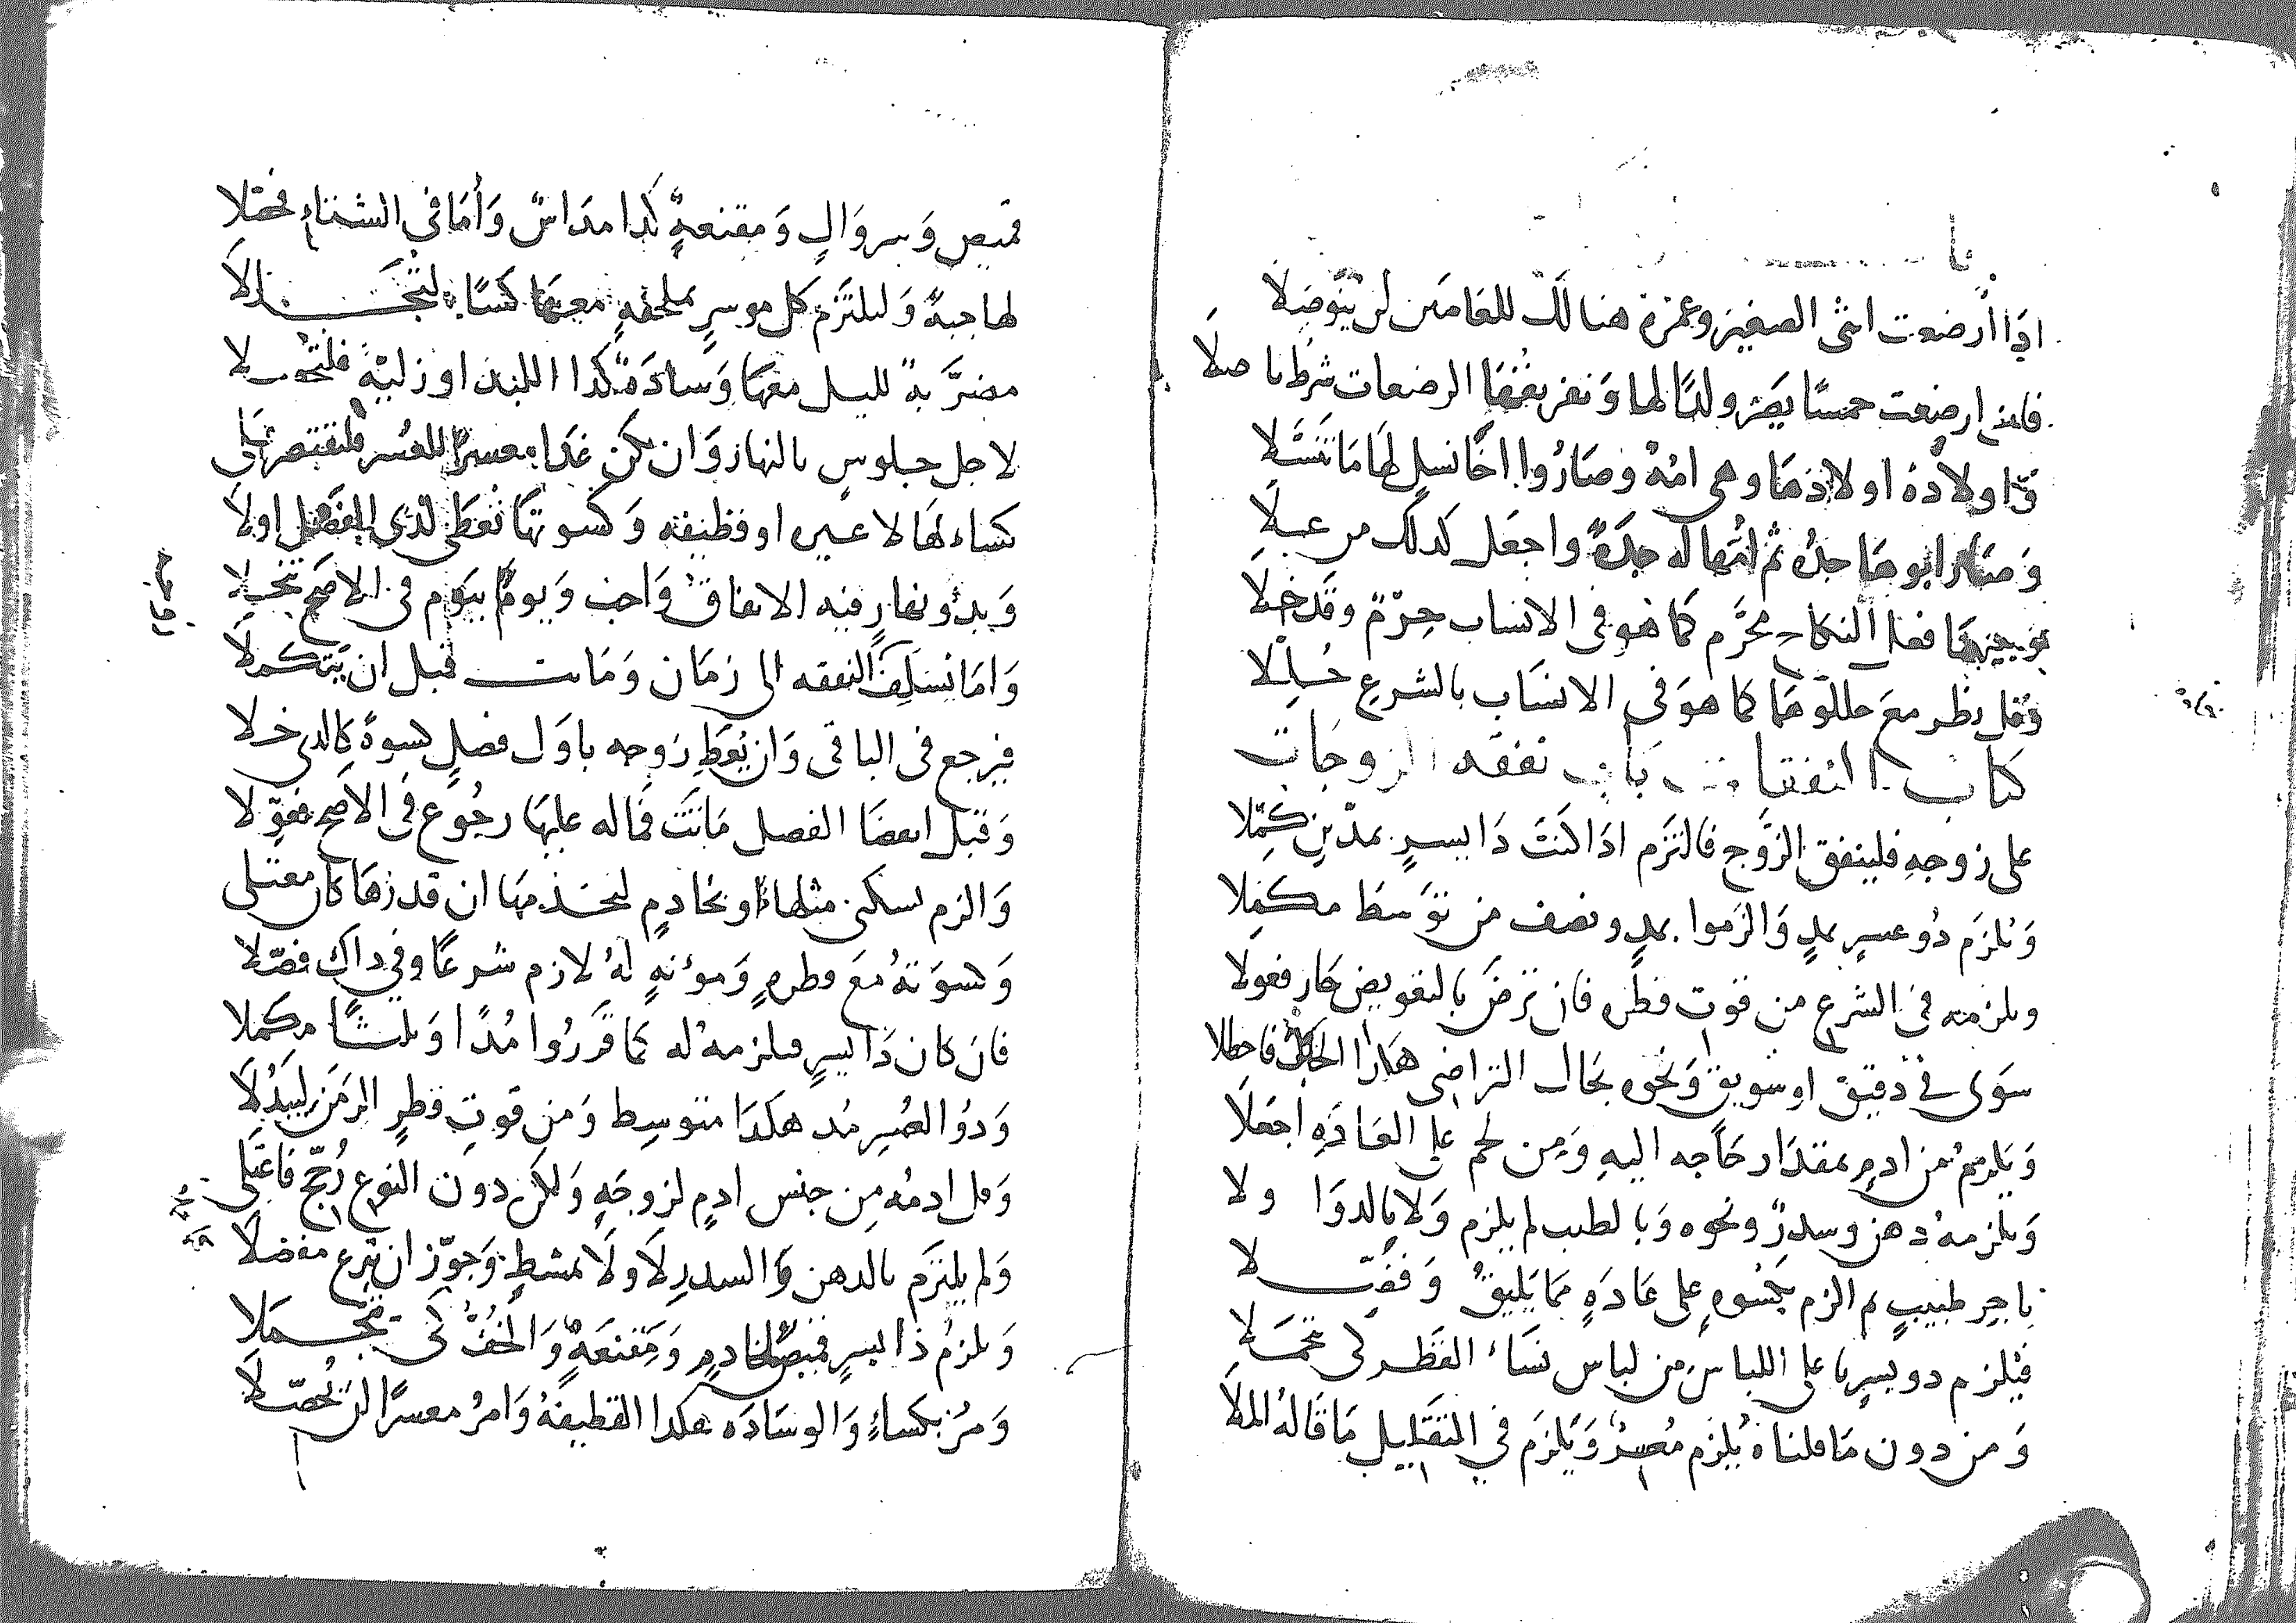 با
اذا أرضعت انثى الصغير وعمره هنالك للعامين لن يتوصلا
فانه ارضعت خمسا يصر ولدا لها وتفريقها الرضعات شرطا
اولاده اولادها وهى امه وصاروا اخا نسل لها ما تنسلا
وصار ابوها جده ثم امها له جدة واجعل كذلك من علا
النكاح محرم كما هو فى الانساب حرم وقد خلا
وقل نظر مع حللوهما كما هو فى الانساب بالشرع حللا
كتاب النفقات باب نفقه الزوجات
على زوجه فلينفق الزوج فالتزم اذا كنت ذا يسر بمدين كملا
ويلزم ذو عسر بمد والزموا بمد ونصف من توسط مكملا
ويلزمه فى الشرع من قوت قطره فان ترض بالتعويض جاز فعولا
سوى فى دقيق او سويق ونحوه بحال التراضى هذا
ويلزم من ادم بمقدار حاجه اليه ومن لحم على العاده اجعلا
ويلزمه دهن وسدر ونحوه وبالطب لم يلزم ولا بالدوا ولا
باجر طبيب ثم الزم بكسوه على عاده مما يليق وفضلا
فيلزم ذو يسر باعلى اللباس من لباس نساء القطر كى تتجملا
ومن دون ما قلناه يلزم معسر ويلزم فى التقليل ما قاله الملا
قميص وسروال ومقنعة كذا مداس وأما فى الشتاء فحصلا
لها جبة وليلتزم كل موسر ملحفه معها كسا لتجملا
مضربة لليل معها وسادة كذا اللبد او زلية
لاجل جلوس بالنهار وان يكن غدا معسرا للعسر فليقتصر على
كساء لها لا غيره او قطيفه وكسوتها تعطى لدى الفصل اولا
وبدو نهار فيه الانفاق واجب ويوما بيوم فى الاصح
واما تسلف النفقه الى زمان وماتت قبل ان يتكملا
فيرجع فى الباقى وان يعط زوجه باول فصل كسوة كالذى خلا
وقبل انقضا الفصل ماتت فما له عليها رجوع فى الاصح فعولا
والزم بسكنى مثلها او بخادم لتخدمها ان قدرها كان معتلى
وكسوته مع فطره ومؤنه له لازم شرعا وفى ذاك فصلا
فان كان ذا يسر فيلزمه له كما قرروا مدا وثلثا مكملا
وذو العسر مد هكذا متوسط ومن قوت قطر الزمن ليبذلا
وقل ادمه من جنس ادم لزوجه ولكن دون النوع رجح فاعتلى
ولم يلتزم بالدهن والسدر لا ولا بمشط وجوز ان تبرع مفضلا
ويلزم ذا يسر قميص لخادم ومقنعة والخف كى تتجملا
ومز بكساء والوساده هكذا القطيفة وامر معسرا